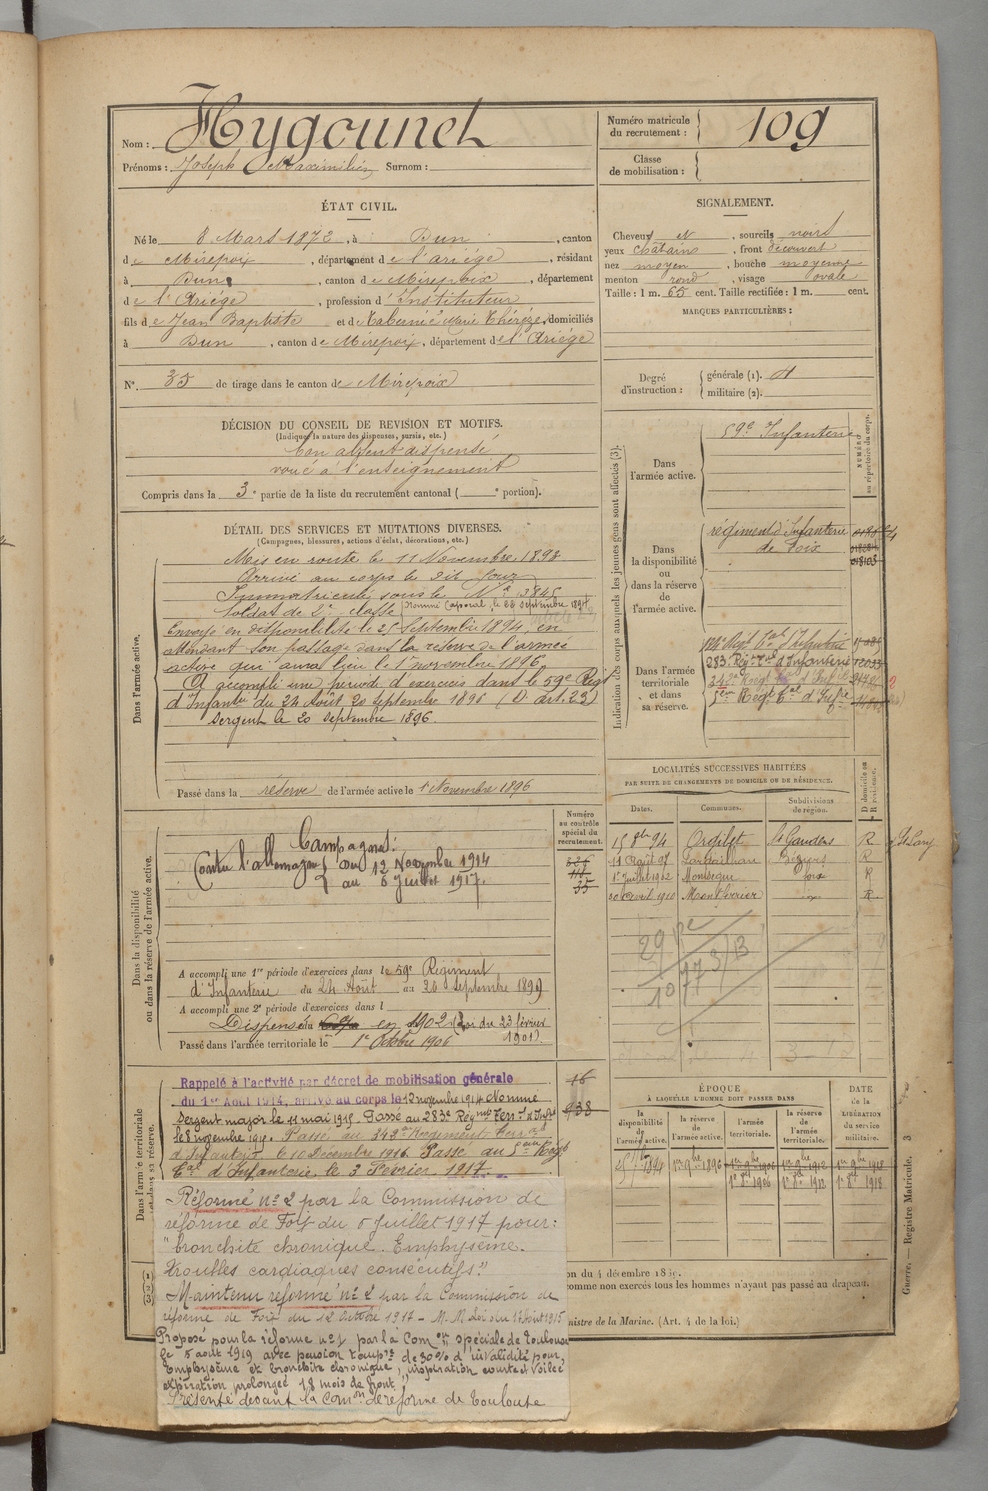 Nom : Hygounet
Prénoms : Joseph Maximilien Surnom :
Numéro matricule du recrutement : 109
Classe de mobilisation :
ÉTAT CIVIL.
Né le 8 Mars 1872, à Dun, canton
de Mirepoix, département de l'ariége, résidant
à Dun, canton de Mirepoix, département
de l'Ariége, profession d'Instituteur
fils de Jean Baptiste et de Tabernié Marie Thérèze, domiciliés
à Dun, canton de Mirepoix, département de l'Ariége
N°. 35 de tirage dans le canton de Mirepoix
SIGNALEMENT.
Cheveux et, sourcils noirs
yeux chatains, front découvert
nez moyen, bouche moyenne
menton rond, visage ovale
Taille : 1 m. 65 cent. Taille rectifiée : 1 m. cent.
MARQUES PARTICULIÈRES :
Degré d'instruction : générale (1).
militaire (2).
DÉCISION DU CONSEIL DE REVISION ET MOTIFS.
(Indiquer la nature des dispenses, sursis, etc.)
bon absent dispensé
voué à l'enseignement
Compris dans la 3e partie de la liste du recrutement cantonal ( e portion).
DÉTAIL DES SERVICES ET MUTATIONS DIVERSES.
(Campagnes, blessures, actions d'éclat, décorations, etc.)
Dans l'armée active.
Mis en route le 11 Novembre 1893
Arrivé au corps le dit jour
Immatriculé sous le N° 3845
Soldat de 2e classe Nommé Caporal, le 22 septembre 1894
Envoyé en disponibilité le 25 Septembre 1894, en
attendant son passage dans la réserve de l'armée
active qui aura lieu le 1er novembre 1896
A accompli une période d'exercices dans le 59e Régt
d'Infanterie du 24 Août 20 septembre 1896 (D. art. 23)
Sergent le 20 septembre 1896.
Passé dans la réserve de l'armée active le 1 Novembre 1896
Indication des corps auxquels les jeunes gens sont affectés (3).
NUMÉRO au répertoire du corps.
Dans l'armée active.
59e Infanterie
Dans la disponibilité ou dans la réserve de l'armée active.
régiment d'Infanterie
de Foix
018103
Dans l'armée territoriale et dans sa réserve.
283. Régt Tal d'Infanterie
342e Régt Tal d'Infie
5em Régt Tal d'Infie
LOCALITÉS SUCCESSIVES HABITÉES
PAR SUITE DE CHANGEMENTS DE DOMICILE OU DE RÉSIDENCE.
Dates. Communes. Subdivisions de région. D domicile ou R résidence.
15 8bre 94 Ordilet St Gaudens R
11 Août 97 Béziers R
1er Juillet 1902 Montségur foix R
20 avril 1910 Montferrier R
Dans la disponibilité ou dans la réserve de l'armée active.
Numéro au contrôle spécial du recrutement.
Campagnes :
Contre l'allemagne du 12 Novembre 1914
au 6 Juillet 1917.
35
A accompli une 1re période d'exercices dans le 59e Régiment
d'Infanterie du 24 Août au 20 Septembre 1899
A accompli une 2e période d'exercices dans l
Dispensé en 1902 (Loi du 23 février
1901)
Passé dans l'armée territoriale le 1er Octobre 1906
Dans l'armée territoriale et dans sa réserve.
Rappelé à l'activité par décret de mobilisation générale 16
du 1er Août 1914, arrivé au corps le 12 novembre 1914 Nommé
Sergent major le 11 mai 1915. Passé au 283e Régmt Terrl d'Infie 938
le 8 novembre 1915. Passé au 342e Régiment Terral
d'Infanterie le 10 Décembre 1916. Passé au 5eme Régt
Tal d'Infanterie le 3 Février 1917.
Réformé n° 2 par la Commission de
réforme de Foix du 6 Juillet 1917 pour :
"bronchite chronique. Emphysème.
Troubles cardiaques consécutifs."
Maintenu réformé n° 2 par la Commission de
réforme de Foix du 12 Octobre 1917 - Loi du 17 Août 1915
Proposé pour la réforme n° 1 par la Comon spéciale de Toulouse
le 5 août 1919 avec pension tempre de 30% d'invalidité pour,
Emphysème et bronchite chronique, inspiration courte et voilée
expiration prolongée 18 mois de front.
Présenté devant la Comon de réforme de Toulouse
ÉPOQUE
À LAQUELLE L'HOMME DOIT PASSER DANS
la disponibilité de l'armée active.
la réserve de l'armée active.
l'armée territoriale.
la réserve de l'armée territoriale.
DATE de la LIBÉRATION du service militaire.
1er 9bre 1896 1er 9bre 1906 1er 9bre 1912 1er 9bre 1918
1er 8bre 1906 1er 8bre 1912 1er 8bre 1918
comme non exercés tous les hommes n'ayant pas passé au drapeau.
Ministre de la Marine. (Art. 4 de la loi.)
Guerre. — Registre Matricule. 3